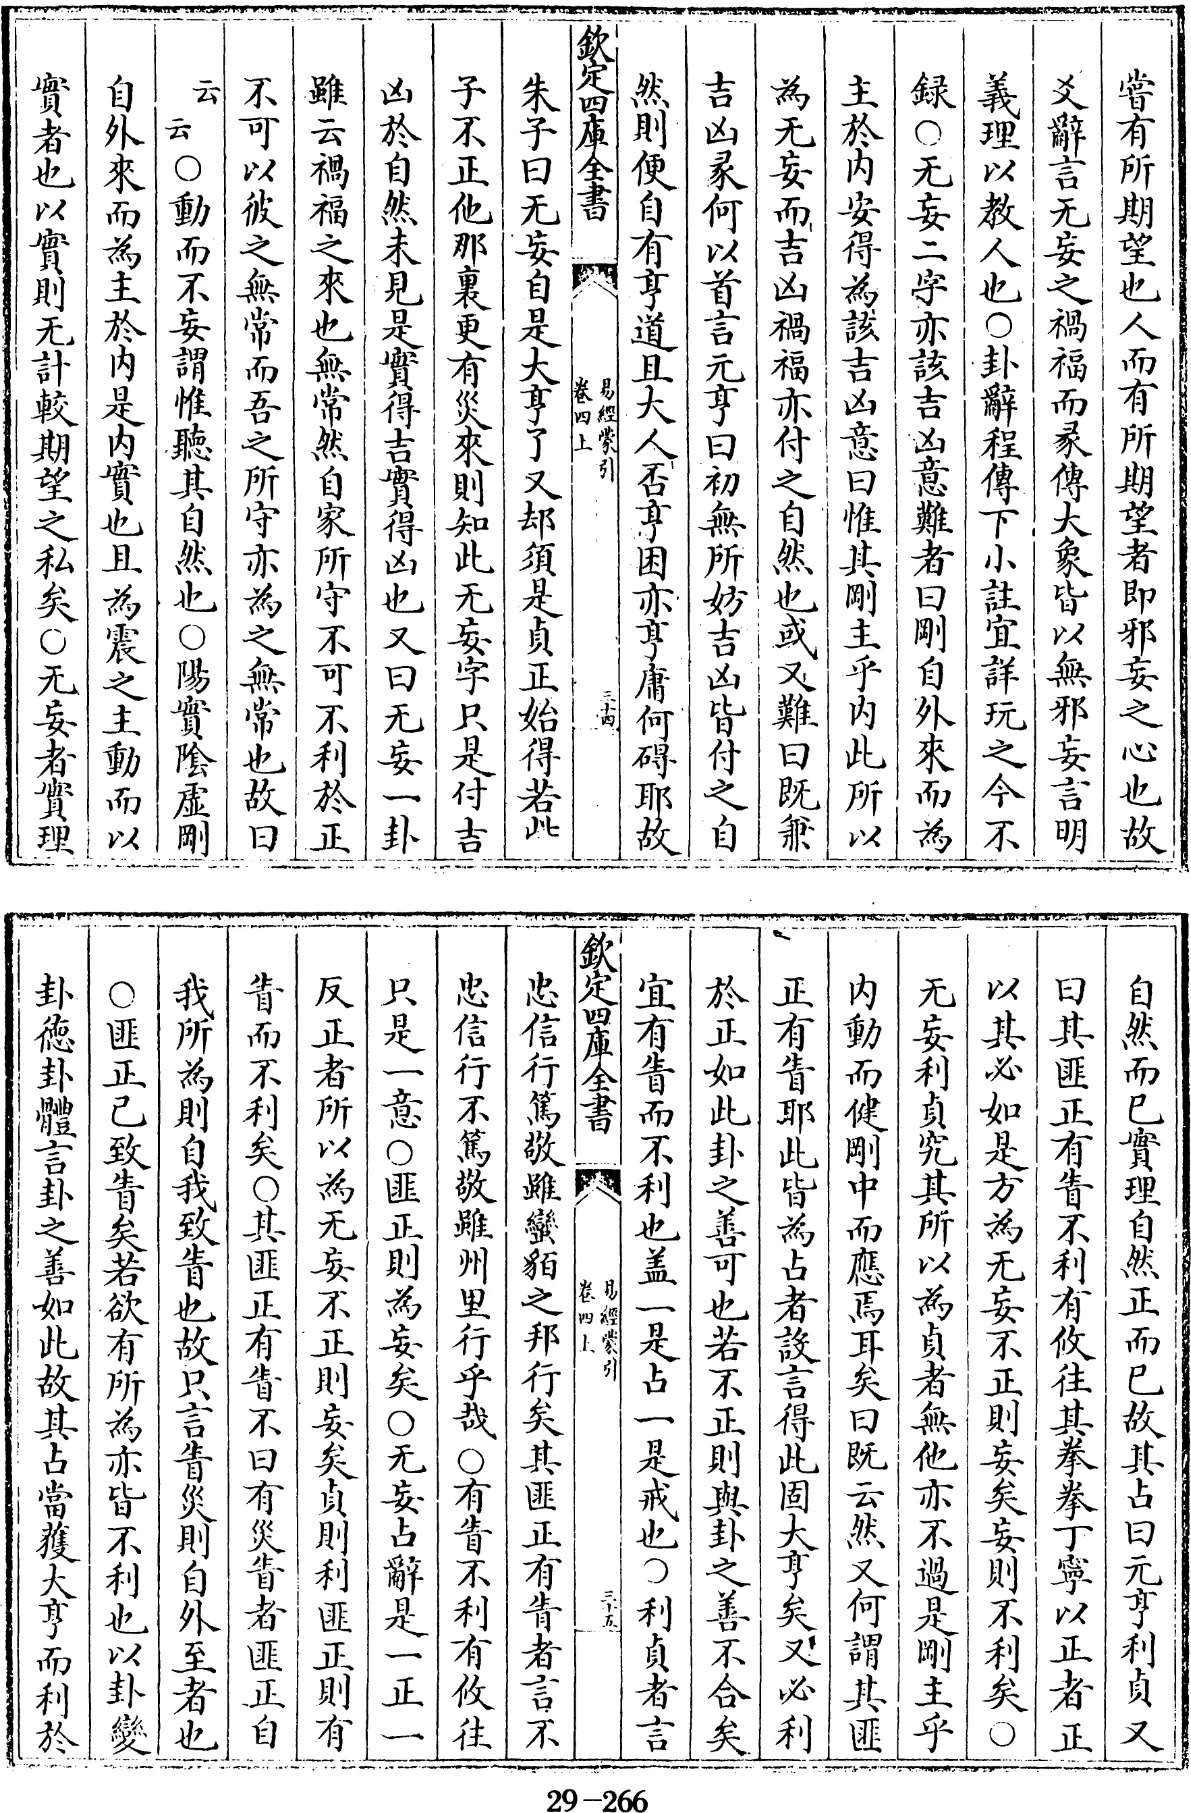 嘗有所期望也人而有所期望者即邪妄之心也故
爻辭言无妄之禍福而彖傳大象皆以無邪妄言明
義理以教人也○卦辭程傳下小註宜詳玩之今不
録○无妄二字亦該吉凶意難者曰剛自外來而為
主於内安得為該吉凶意曰惟其剛主乎内此所以
為无妄而吉凶禍福亦付之自然也或又難曰既兼
吉凶彖何以首言元亨曰初無所妨吉凶皆付之自
然則便自有亨道且大人否亨困亦亨庸何碍耶故
欽定四庫全書
易經蒙引
卷四上
三十四
朱子曰无妄自是大亨了又却須是貞正始得若此
子不正他那裏更有災來則知此无妄字只是付吉
凶於自然未見是實得吉實得凶也又曰无妄一卦
雖云禍福之來也無常然自家所守不可不利於正
不可以彼之無常而吾之所守亦為之無常也故曰
云云○動而不妄謂惟聽其自然也○陽實陰虛剛
自外來而為主於内是内實也且為震之主動而以
實者也以實則无計較期望之私矣○无妄者實理
自然而已實理自然正而已故其占曰元亨利貞又
曰其匪正有眚不利有攸往其拳拳丁寧以正者正
以其必如是方為无妄不正則妄矣妄則不利矣○
无妄利貞究其所以為貞者無他亦不過是剛主乎
内動而健剛中而應焉耳矣曰既云然又何謂其匪
正有眚耶此皆為占者設言得此固大亨矣又必利
於正如此卦之善可也若不正則與卦之善不合矣
宜有眚而不利也盖一是占一是戒也○利貞者言
欽定四庫全書
易經蒙引
卷四上
三十五
忠信行篤敬雖蠻貊之邦行矣其匪正有眚者言不
忠信行不篤敬雖州里行乎哉○有眚不利有攸往
只是一意○匪正則為妄矣○无妄占辭是一正一
反正者所以為无妄不正則妄矣貞則利匪正則有
眚而不利矣○其匪正有眚不曰有災眚者匪正自
我所為則自我致眚也故只言眚災則自外至者也
○匪正已致眚矣若欲有所為亦皆不利也以卦變
卦德卦體言卦之善如此故其占當獲大亨而利於
29-266